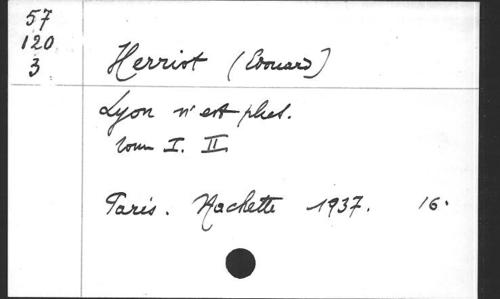 57
120
3
Herriot (Edouard)
Lyon n'est plus.
Tom I. II
Paris. Hachette 1937. 16.